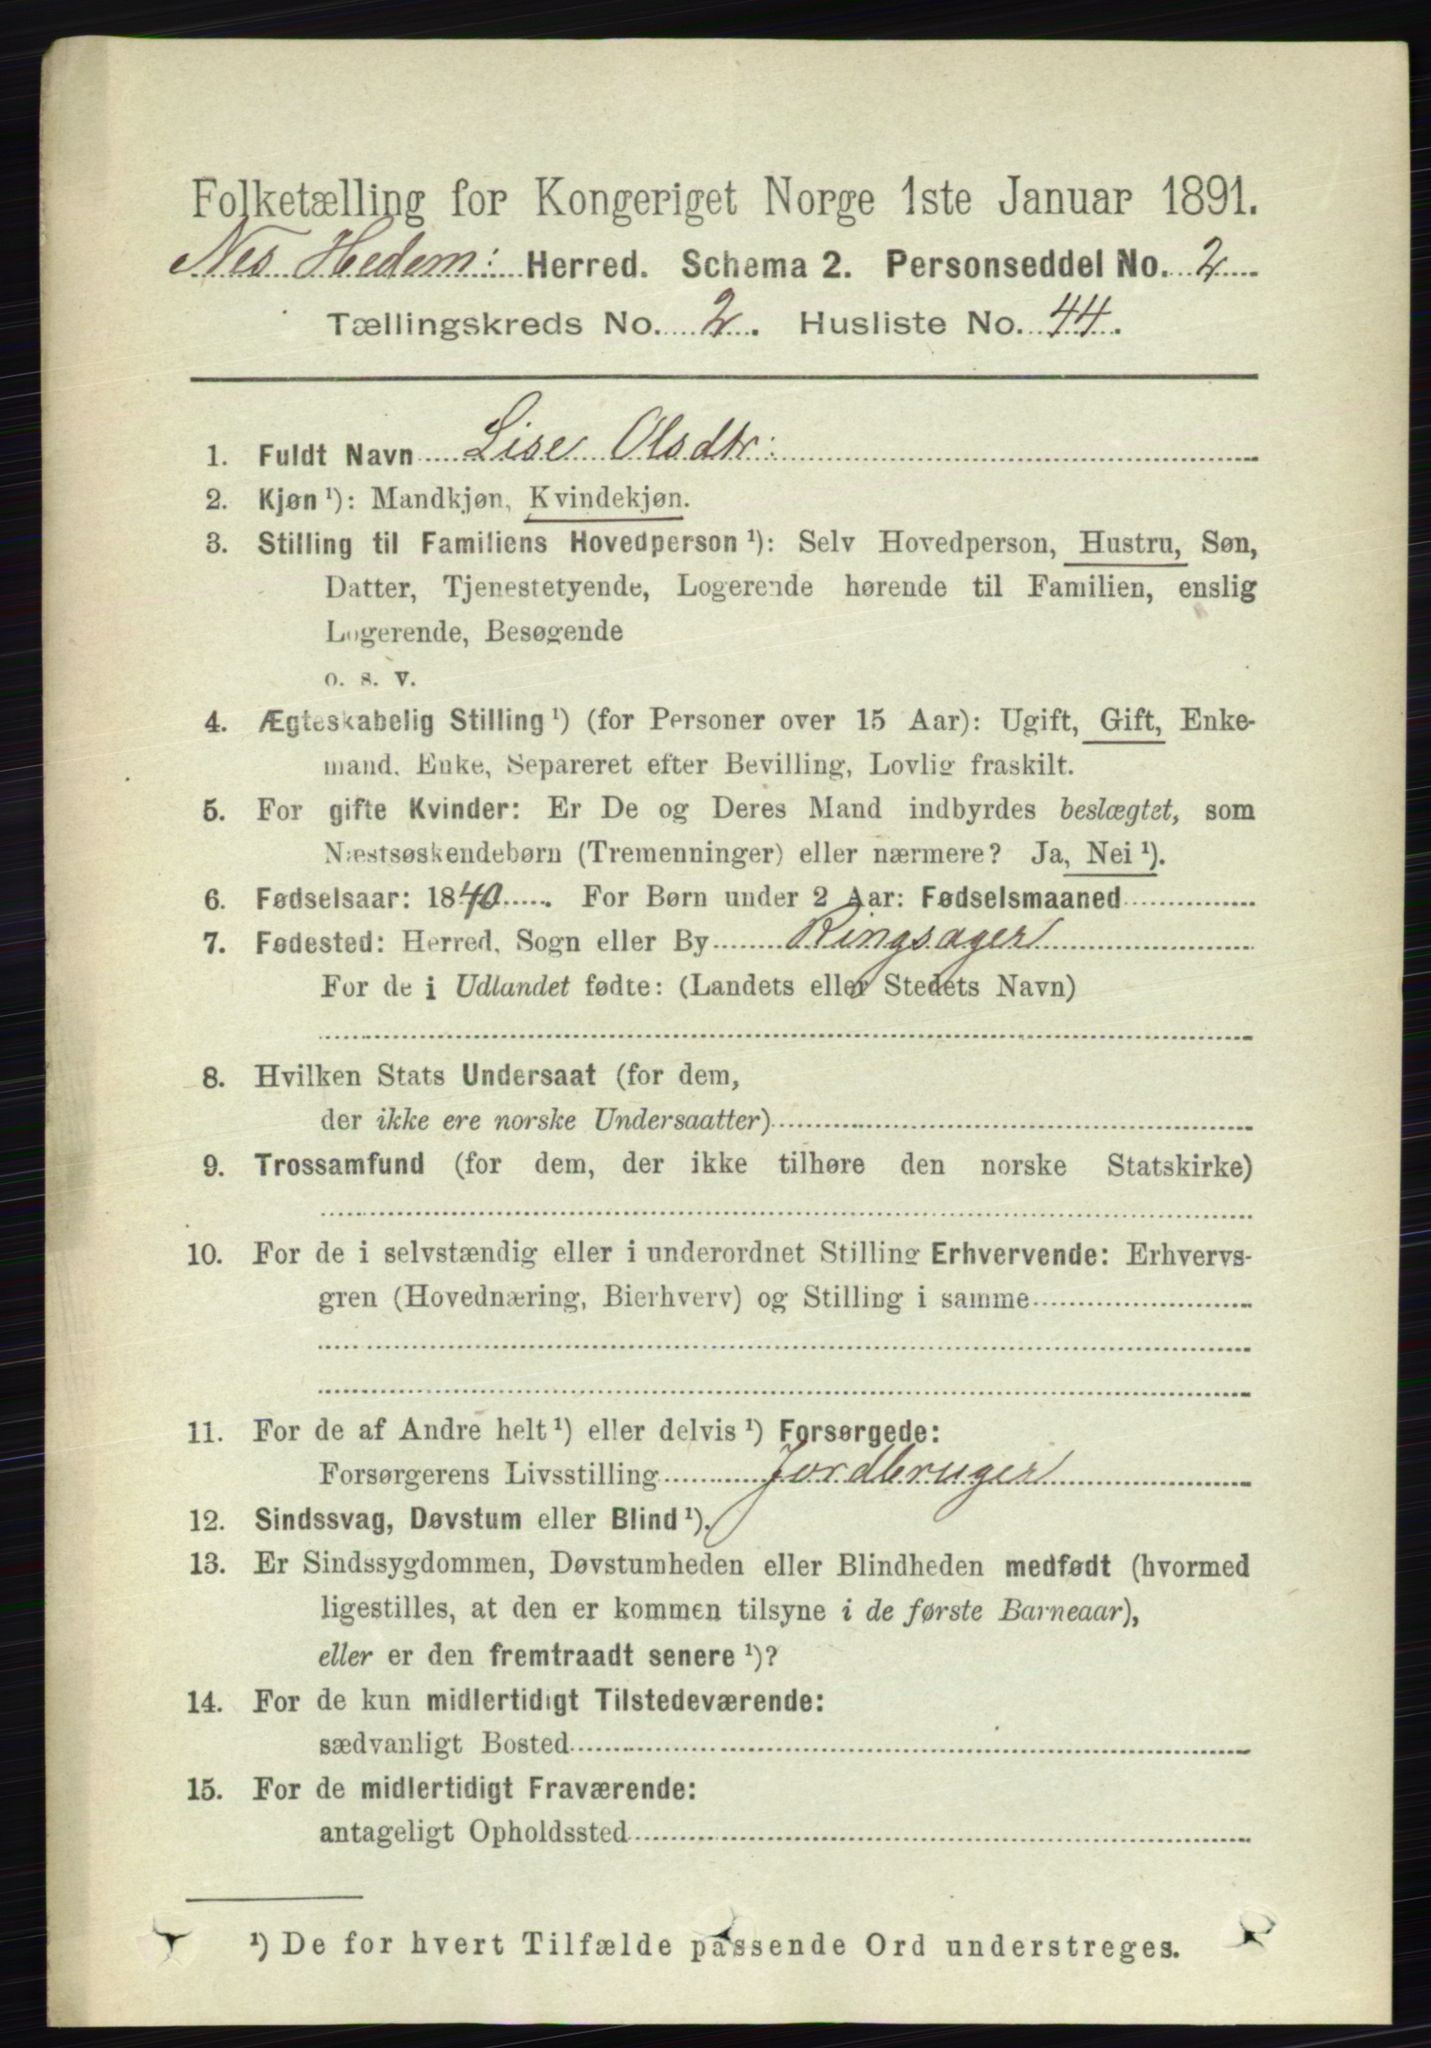 Folketælling for Kongeriget Norge 1ste Januar 1891.
Nes Hedem: Herred. Schema 2. Personseddel No. 2
Tællingskreds No. 2. Husliste No. 44.
1. Fuldt Navn Lise Olsdtr:
2. Kjøn ¹): Mandkjøn, Kvindekjøn.
3. Stilling til Familiens Hovedperson ¹): Selv Hovedperson, Hustru, Søn,
Datter, Tjenestetyende, Logerende hørende til Familien, enslig
Logerende, Besøgende
o. s. v.
4. Ægteskabelig Stilling ¹) (for Personer over 15 Aar): Ugift, Gift, Enke-
mand. Enke, Separeret efter Bevilling, Lovlig fraskilt.
5. For gifte Kvinder: Er De og Deres Mand indbyrdes beslægtet, som
Næstsøskendebørn (Tremenninger) eller nærmere? Ja, Nei ¹).
6. Fødselsaar: 1840. For Børn under 2 Aar: Fødselsmaaned
7. Fødested: Herred, Sogn eller By Ringsager
For de i Udlandet fødte: (Landets eller Stedets Navn)
8. Hvilken Stats Undersaat (for dem,
der ikke ere norske Undersaatter)
9. Trossamfund (for dem, der ikke tilhøre den norske Statskirke)
10. For de i selvstændig eller i underordnet Stilling Erhvervende: Erhvervs-
gren (Hovednæring, Bierhverv) og Stilling i samme
11. For de af Andre helt ¹) eller delvis ¹) Forsørgede:
Forsørgerens Livsstilling Jordbruger
12. Sindssvag, Døvstum eller Blind ¹).
13. Er Sindssygdommen, Døvstumheden eller Blindheden medfødt (hvormed
ligestilles, at den er kommen tilsyne i de første Barneaar),
eller er den fremtraadt senere ¹)?
14. For de kun midlertidigt Tilstedeværende:
sædvanligt Bosted
15. For de midlertidigt Fraværende:
antageligt Opholdssted
¹) De for hvert Tilfælde passende Ord understreges.